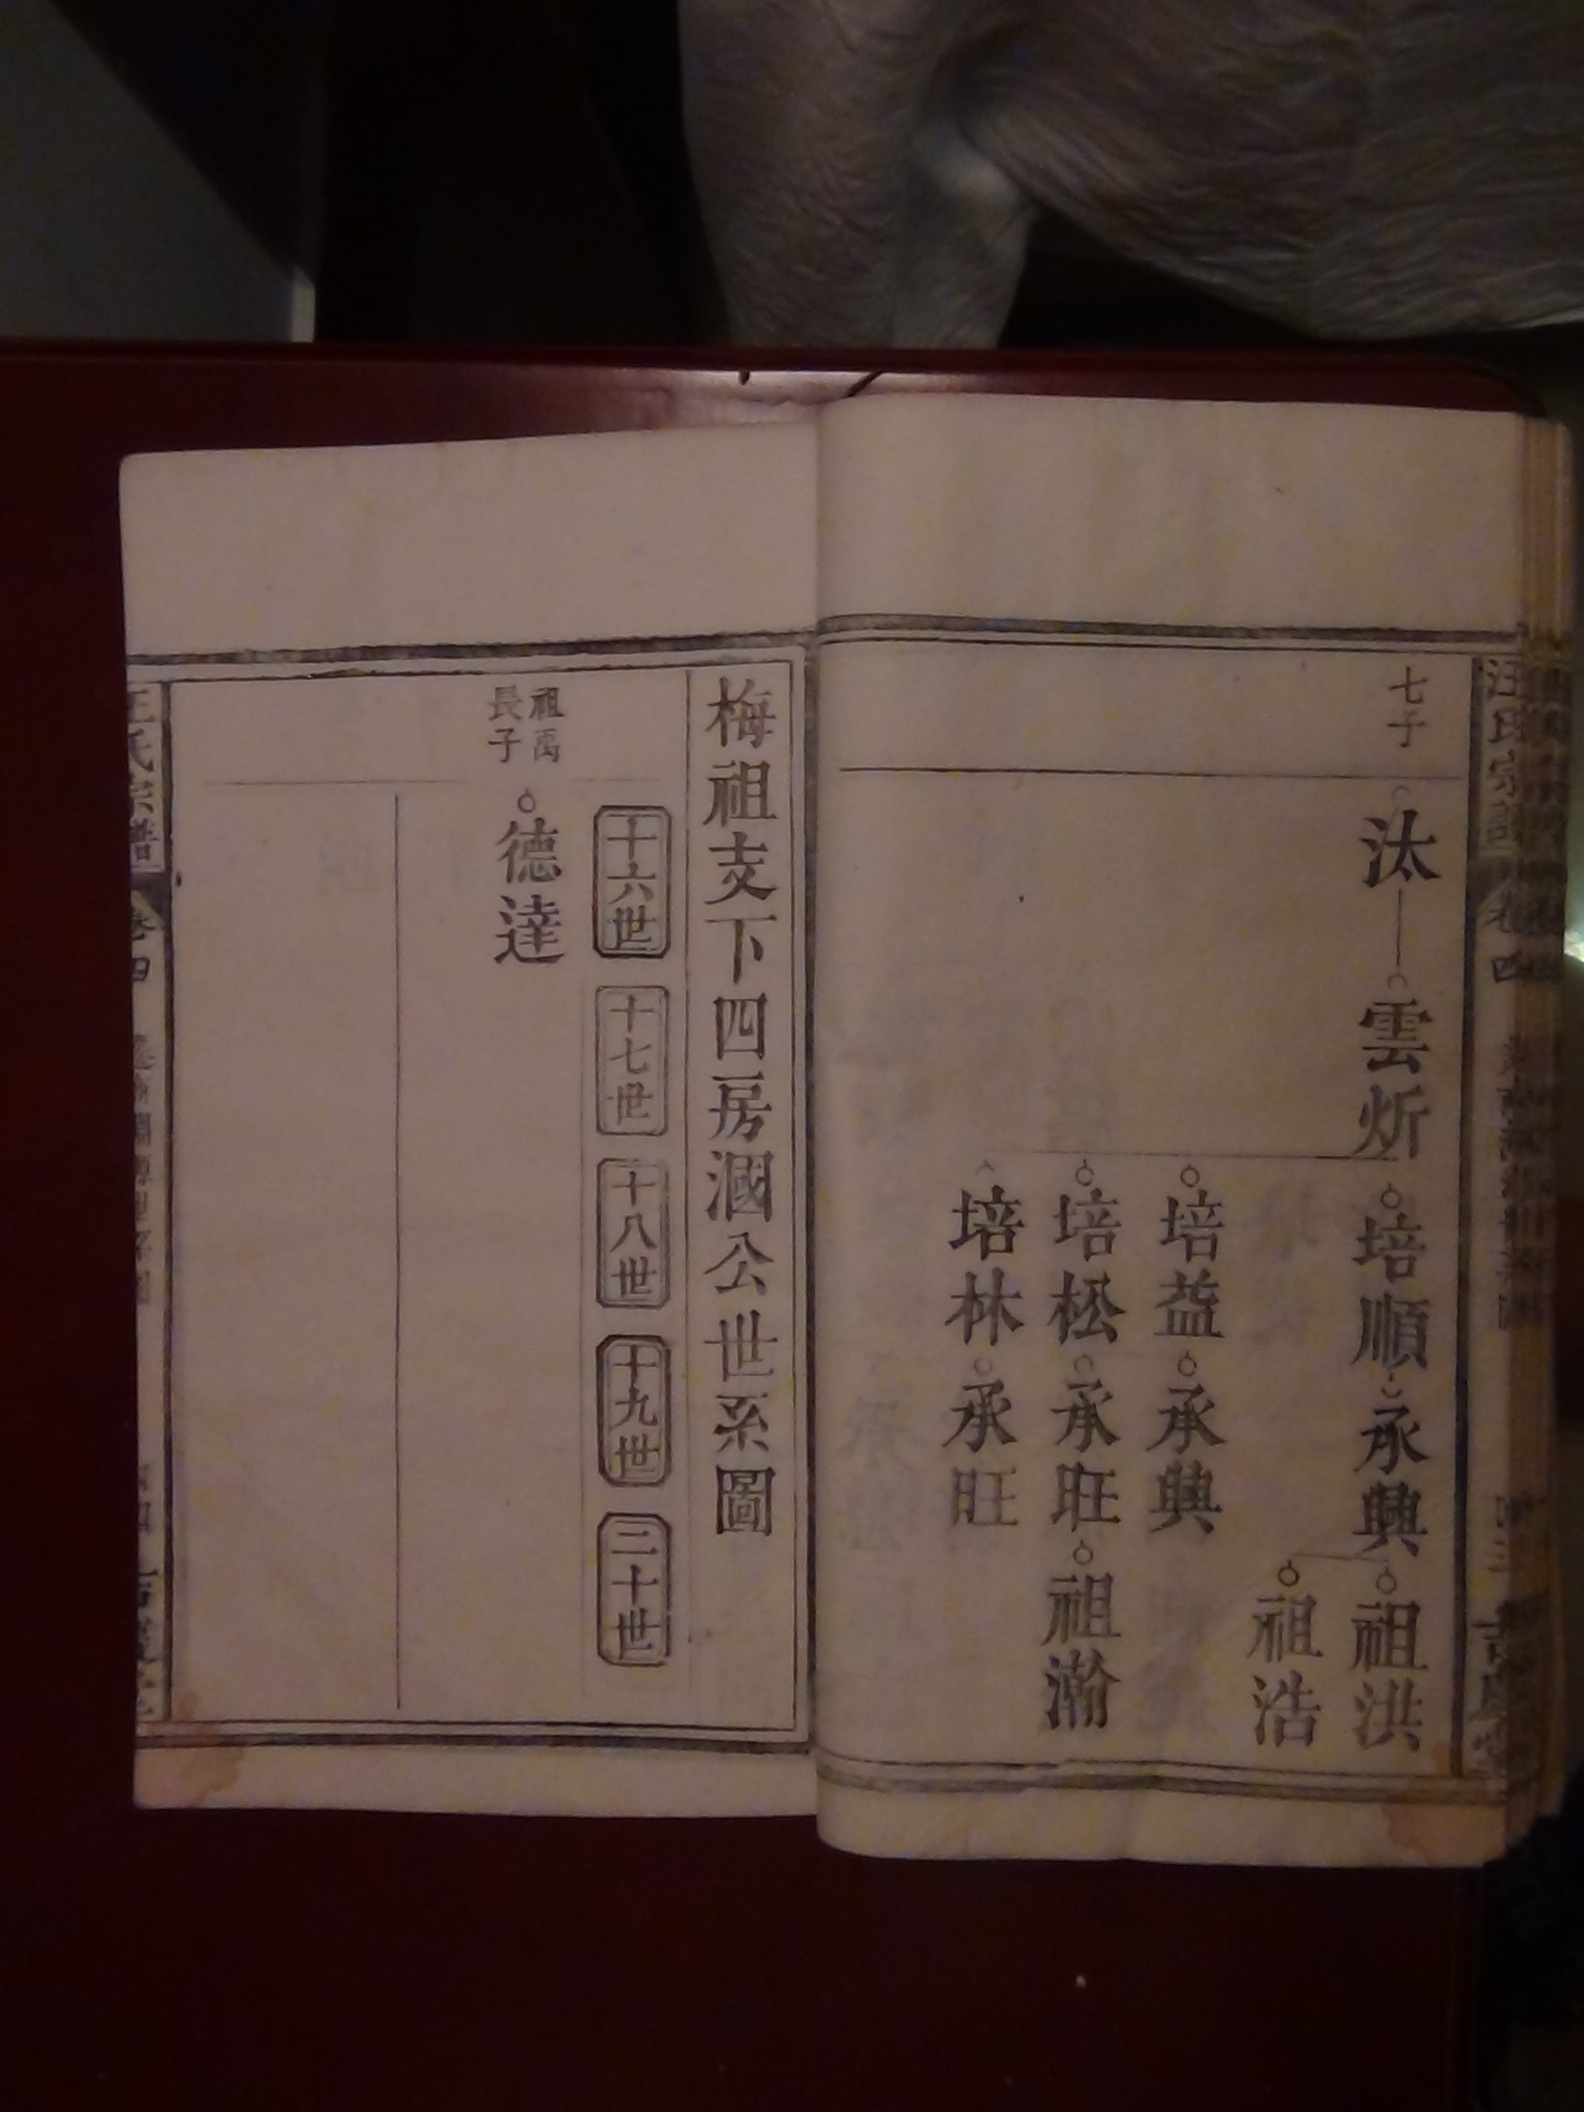 汪氏宗譜
卷四
七子
汰
雲炘
培順
承興
祖洪
祖浩
培益
承興
培松
承旺
祖瀚
培林
承旺
梅祖支下四房漍公世系圖
十六世
十七世
十八世
十九世
二十世
祖禹
長子
德達
氏宗譜
卷四